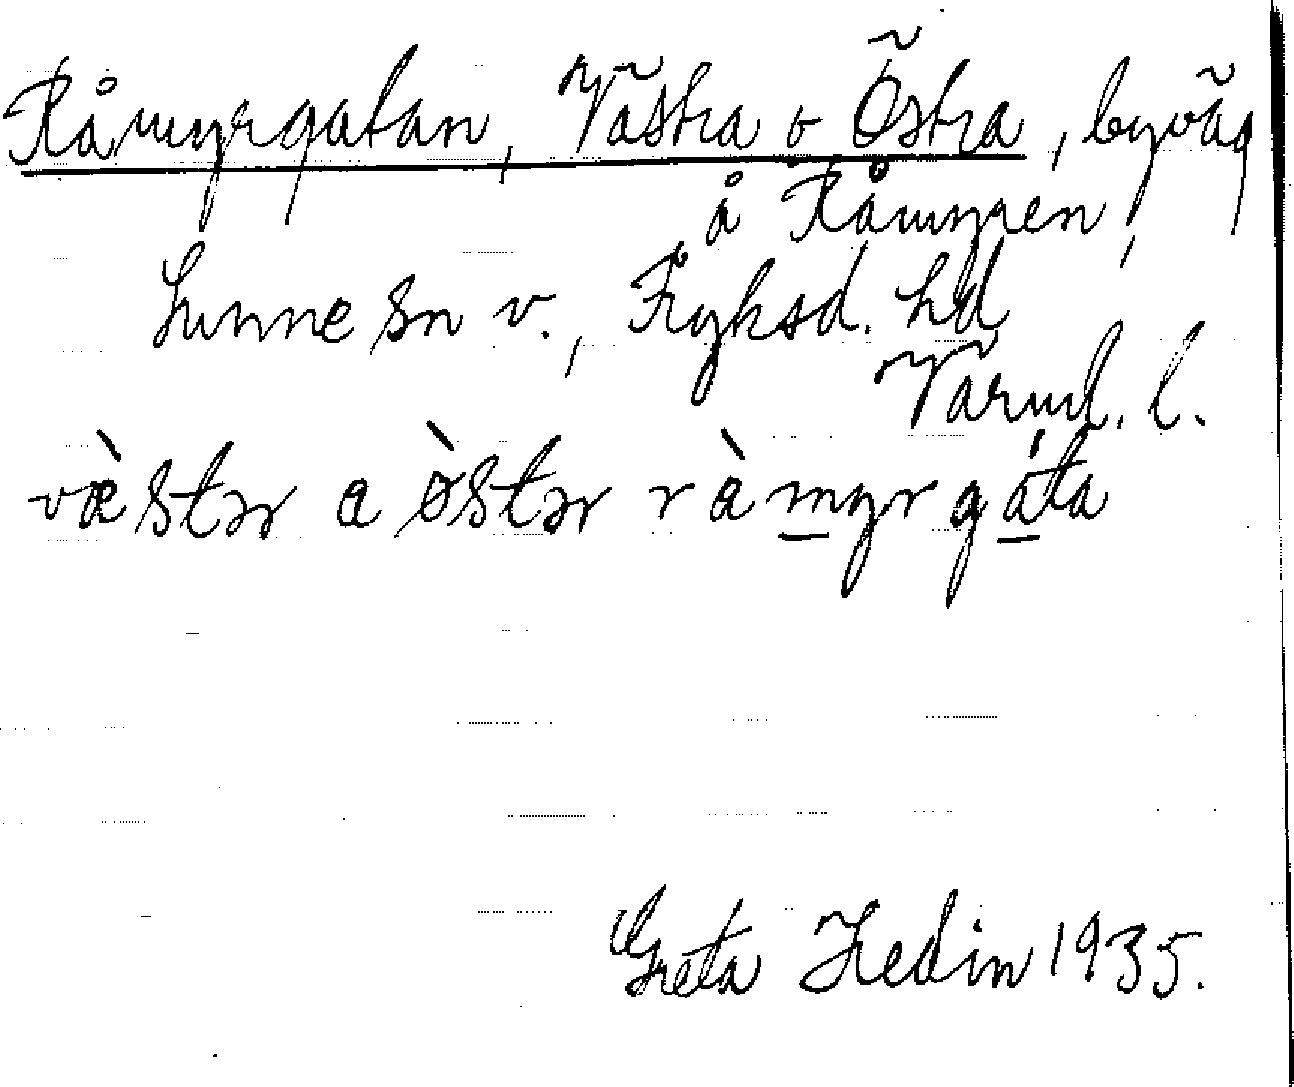 Råmyrgatan, Västra o Östra, byväg
å Råmyren,
Sunne sn v., Fryksd. hd
Värml. l.
væ̀stər a ø̀stər ràmyrgáta
Greta Hedin 1935.